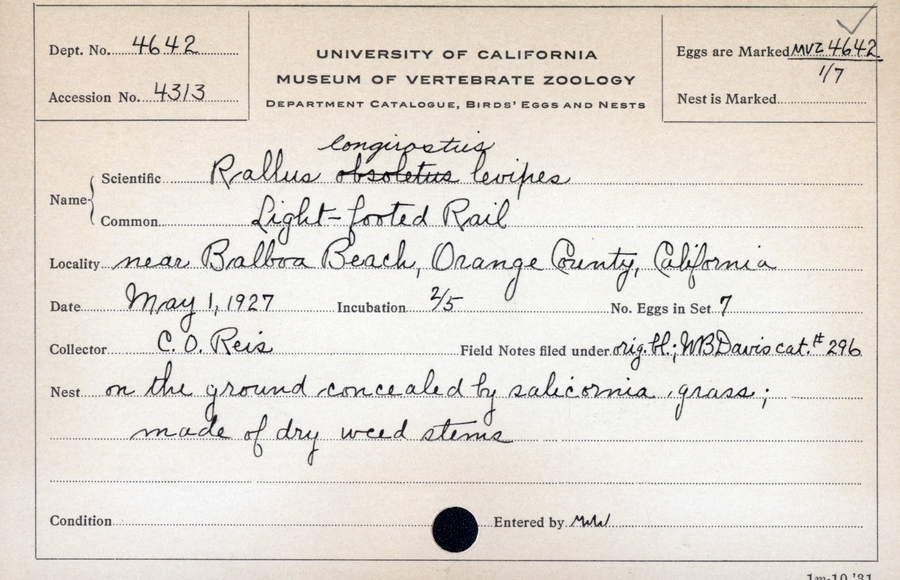 Dept. No. 4642
Accession No. 4313
UNIVERSITY OF CALIFORNIA
MUSEUM OF VERTEBRATE ZOOLOGY
DEPARTMENT CATALOGUE, BIRDS' EGGS AND NESTS
Eggs are Marked MVZ 4642
1/7
Nest is Marked
longirostris
Name { Scientific Rallus obsoletus levipes
Common Light-footed Rail
Locality near Balboa Beach, Orange County, California
Date May 1, 1927 Incubation 2/5 No. Eggs in Set 7
Collector C. O. Reis Field Notes filed under orig. bl.; WB Davis cat. # 296
Nest on the ground concealed by salicornia grass;
made of dry weed stems
Condition Entered by
1m-10,'31